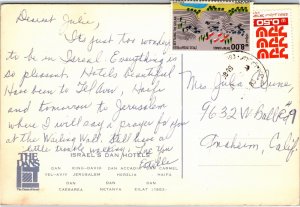 Dearest Julie,
It's just too wonder
to be in Isreal. Everything is
so pleasant. Hotels Beautiful
Have been to Tel Aviv, Haifa
and tomorrow to Jerusalem
where I will say a prayer for you
at the Wailing Wall. Still have a
little trouble walking. Love You
Mrs Julia
9632 W Ball Rd
Anaheim, Calif.
8.00
0.50
THE DANS
ISRAEL'S DAN HOTELS
DAN KING-DAVID DAN ACCADIA DAN CARMEL
TEL-AVIV JERUSALEM HERZLIA HAIFA
DAN DAN
CAESAREA NETANYA EILAT (1982)